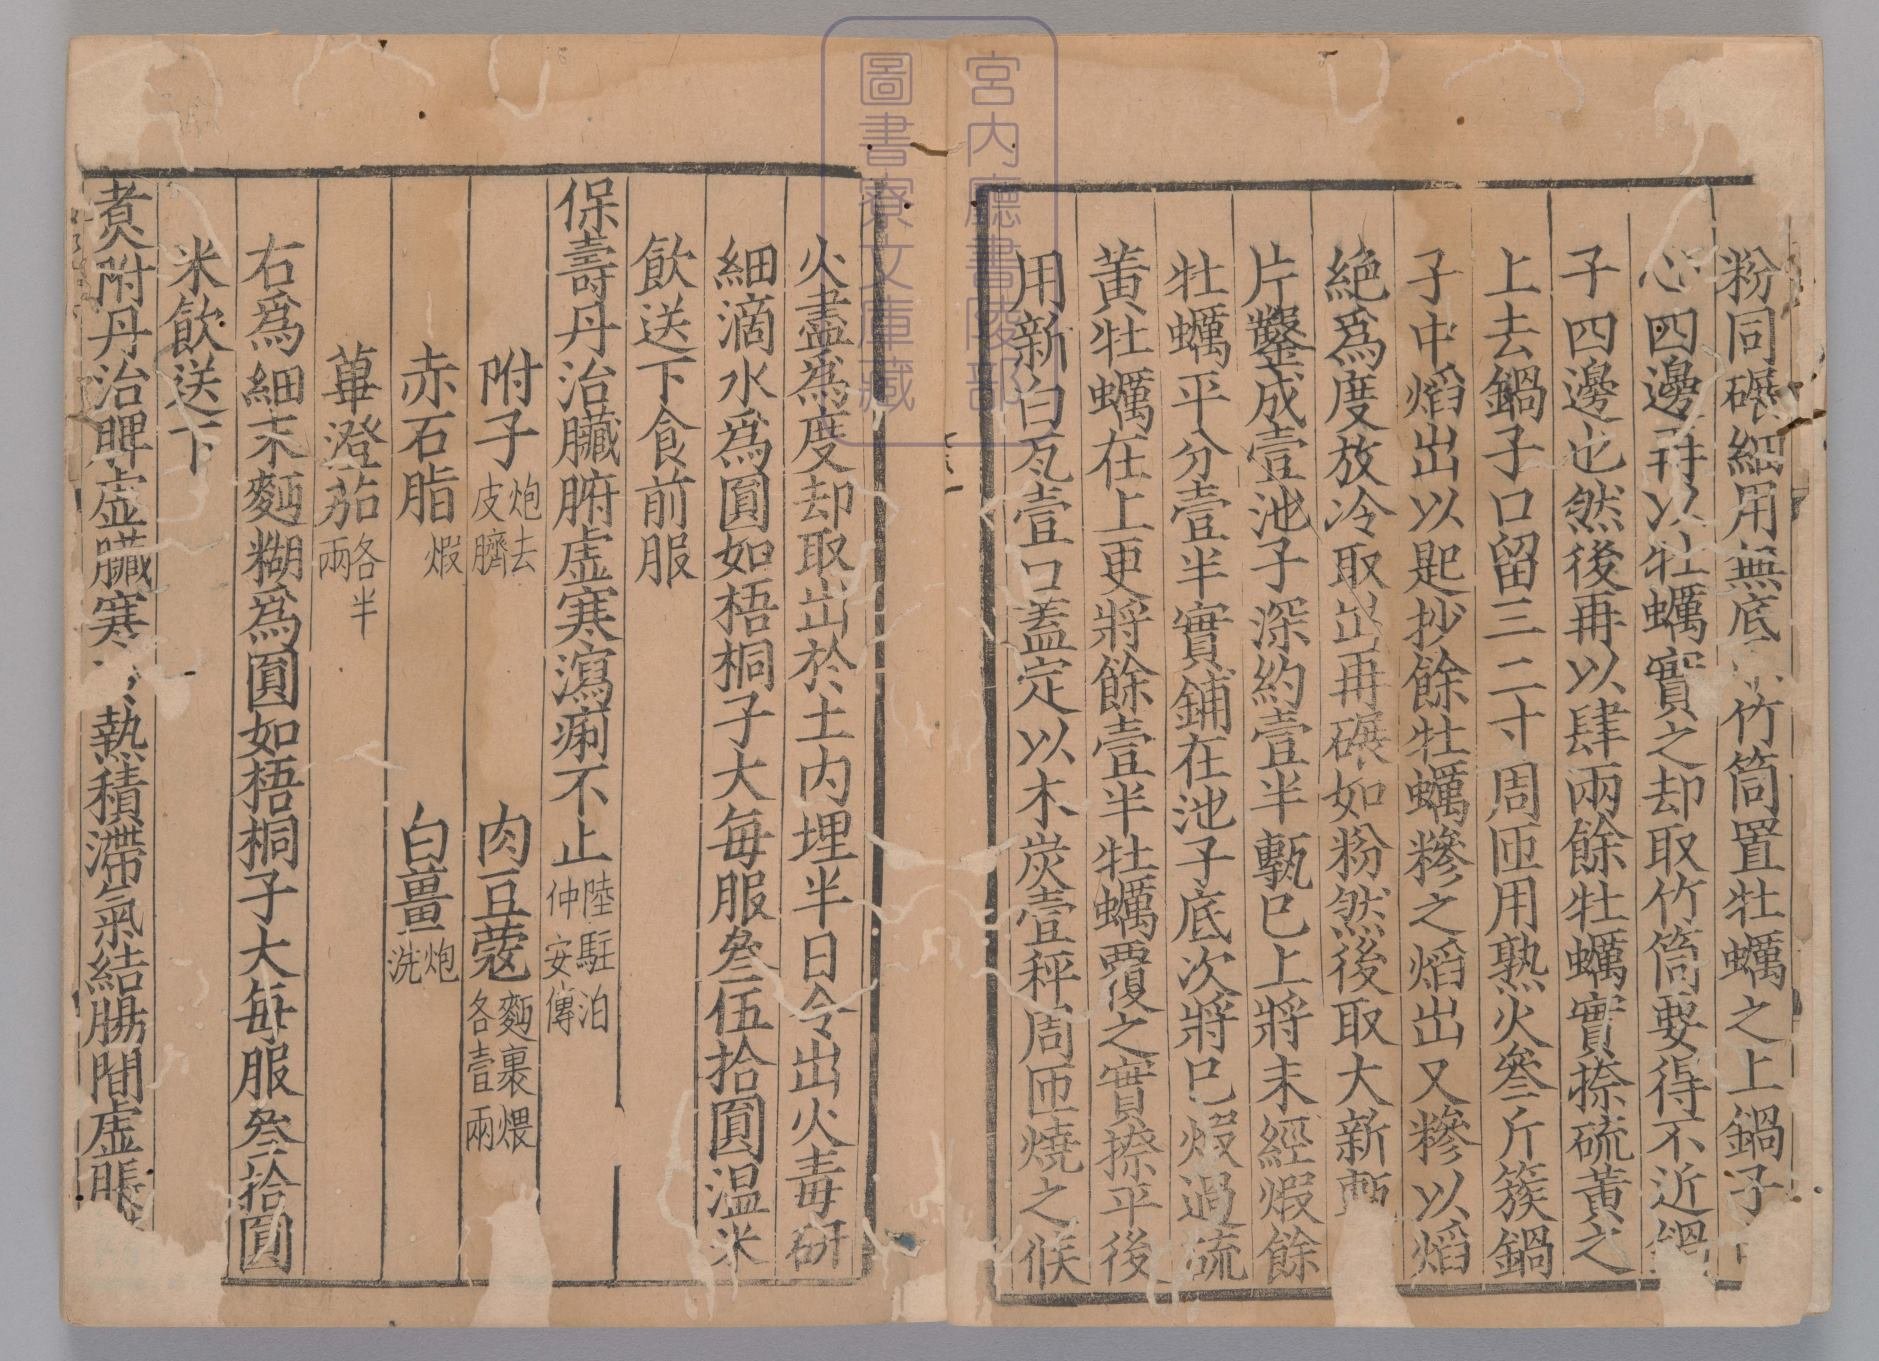 粉同碾細用無底竹筒置牡蠣之上鍋子
心四邊再以牡蠣實之却取竹筒要得不近鍋
子四邊也然後再以肆兩餘牡蠣實捺硫黃之
上去鍋子口留三二寸周匝用熟火叁斤簇鍋
子中焰出以匙抄餘牡蠣糝之焰出又糝以焰
絶爲度放冷取出再碾如粉然後取大新
片鑿成壹池子深約壹半甎已上將未經煆餘
牡蠣平分壹半實鋪在池子底次將已煆過硫
黃牡蠣在上更將餘壹半牡蠣覆之實捺平後
用新白瓦壹口蓋定以木炭壹秤周匝燒之候
火盡爲度却取出於土內埋半日令出火毒研
細滴水爲圓如梧桐子大每服叁伍拾圓温米
飲送下食前服
保壽丹治臟腑虛寒瀉痢不止陸駐泊仲安傳
附子炮去皮臍 肉豆蔻麪裹煨各壹兩
赤石脂煆 白薑炮洗
蓽澄茄各半兩
右爲細末麪糊爲圓如梧桐子大每服叁拾圓
米飲送下
煮附丹治脾虛臟寒熱積滯氣結腸間虛脹
宮內廳書陵部
圖書寮文庫藏